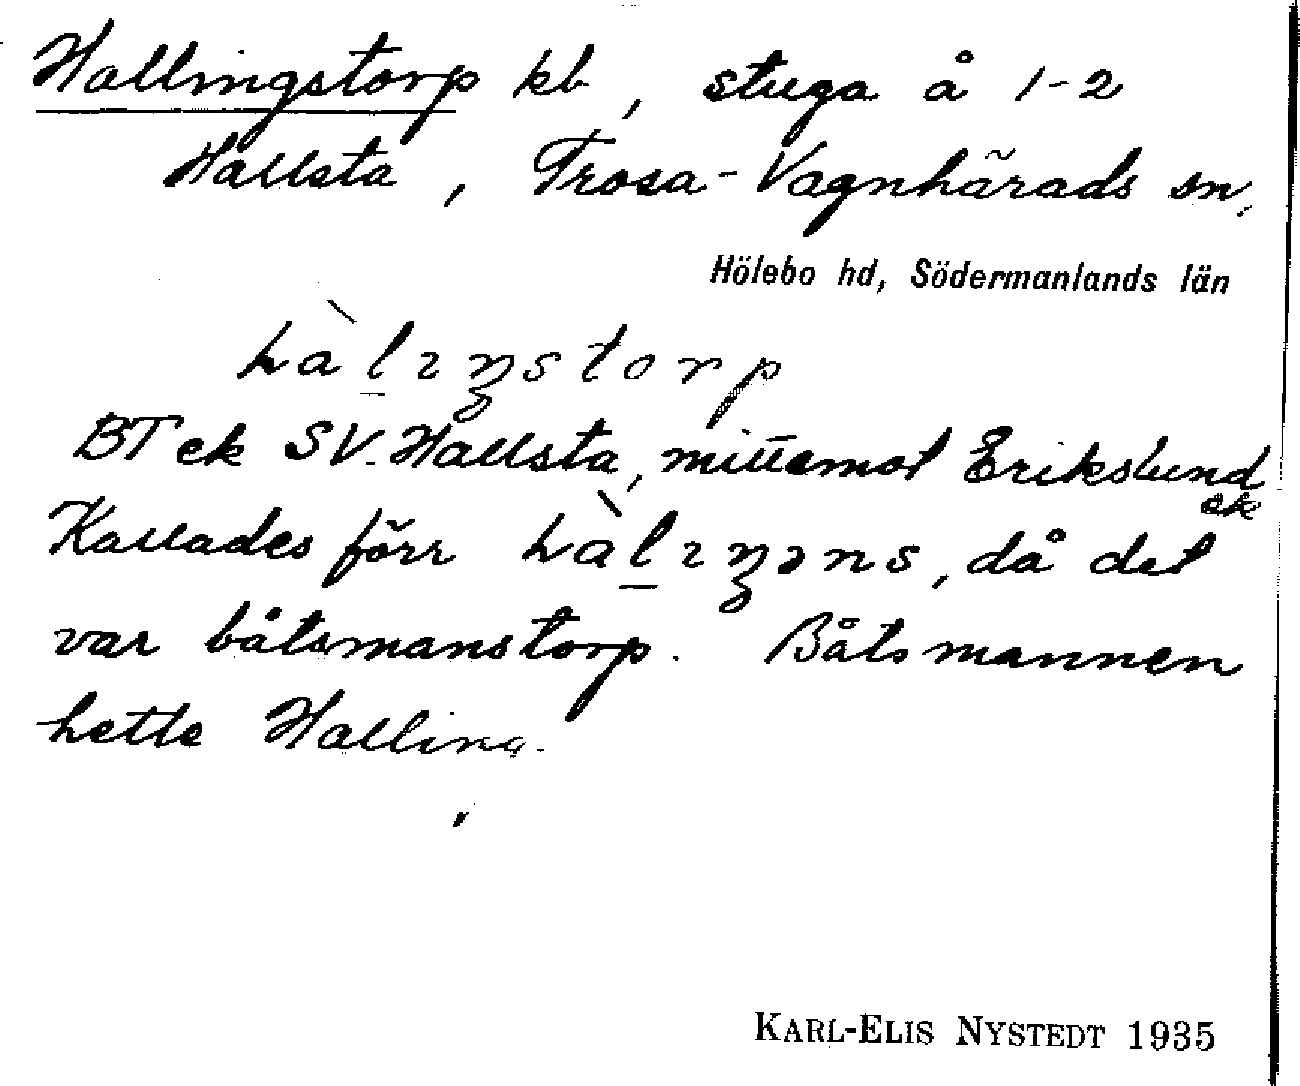 Hallingstorp kb, stuga å 1-2
Hallsta, Trosa-Vagnhärads sn,
Hölebo hd, Södermanlands län
hàlıŋstorp
BT ek SV. Hallsta, mittemot Erikslund
ek
Kallades förr hàlıŋəns, då det
var båtsmanstorp. Båtsmannen
hette Halling.
KARL-ELIS NYSTEDT 1935